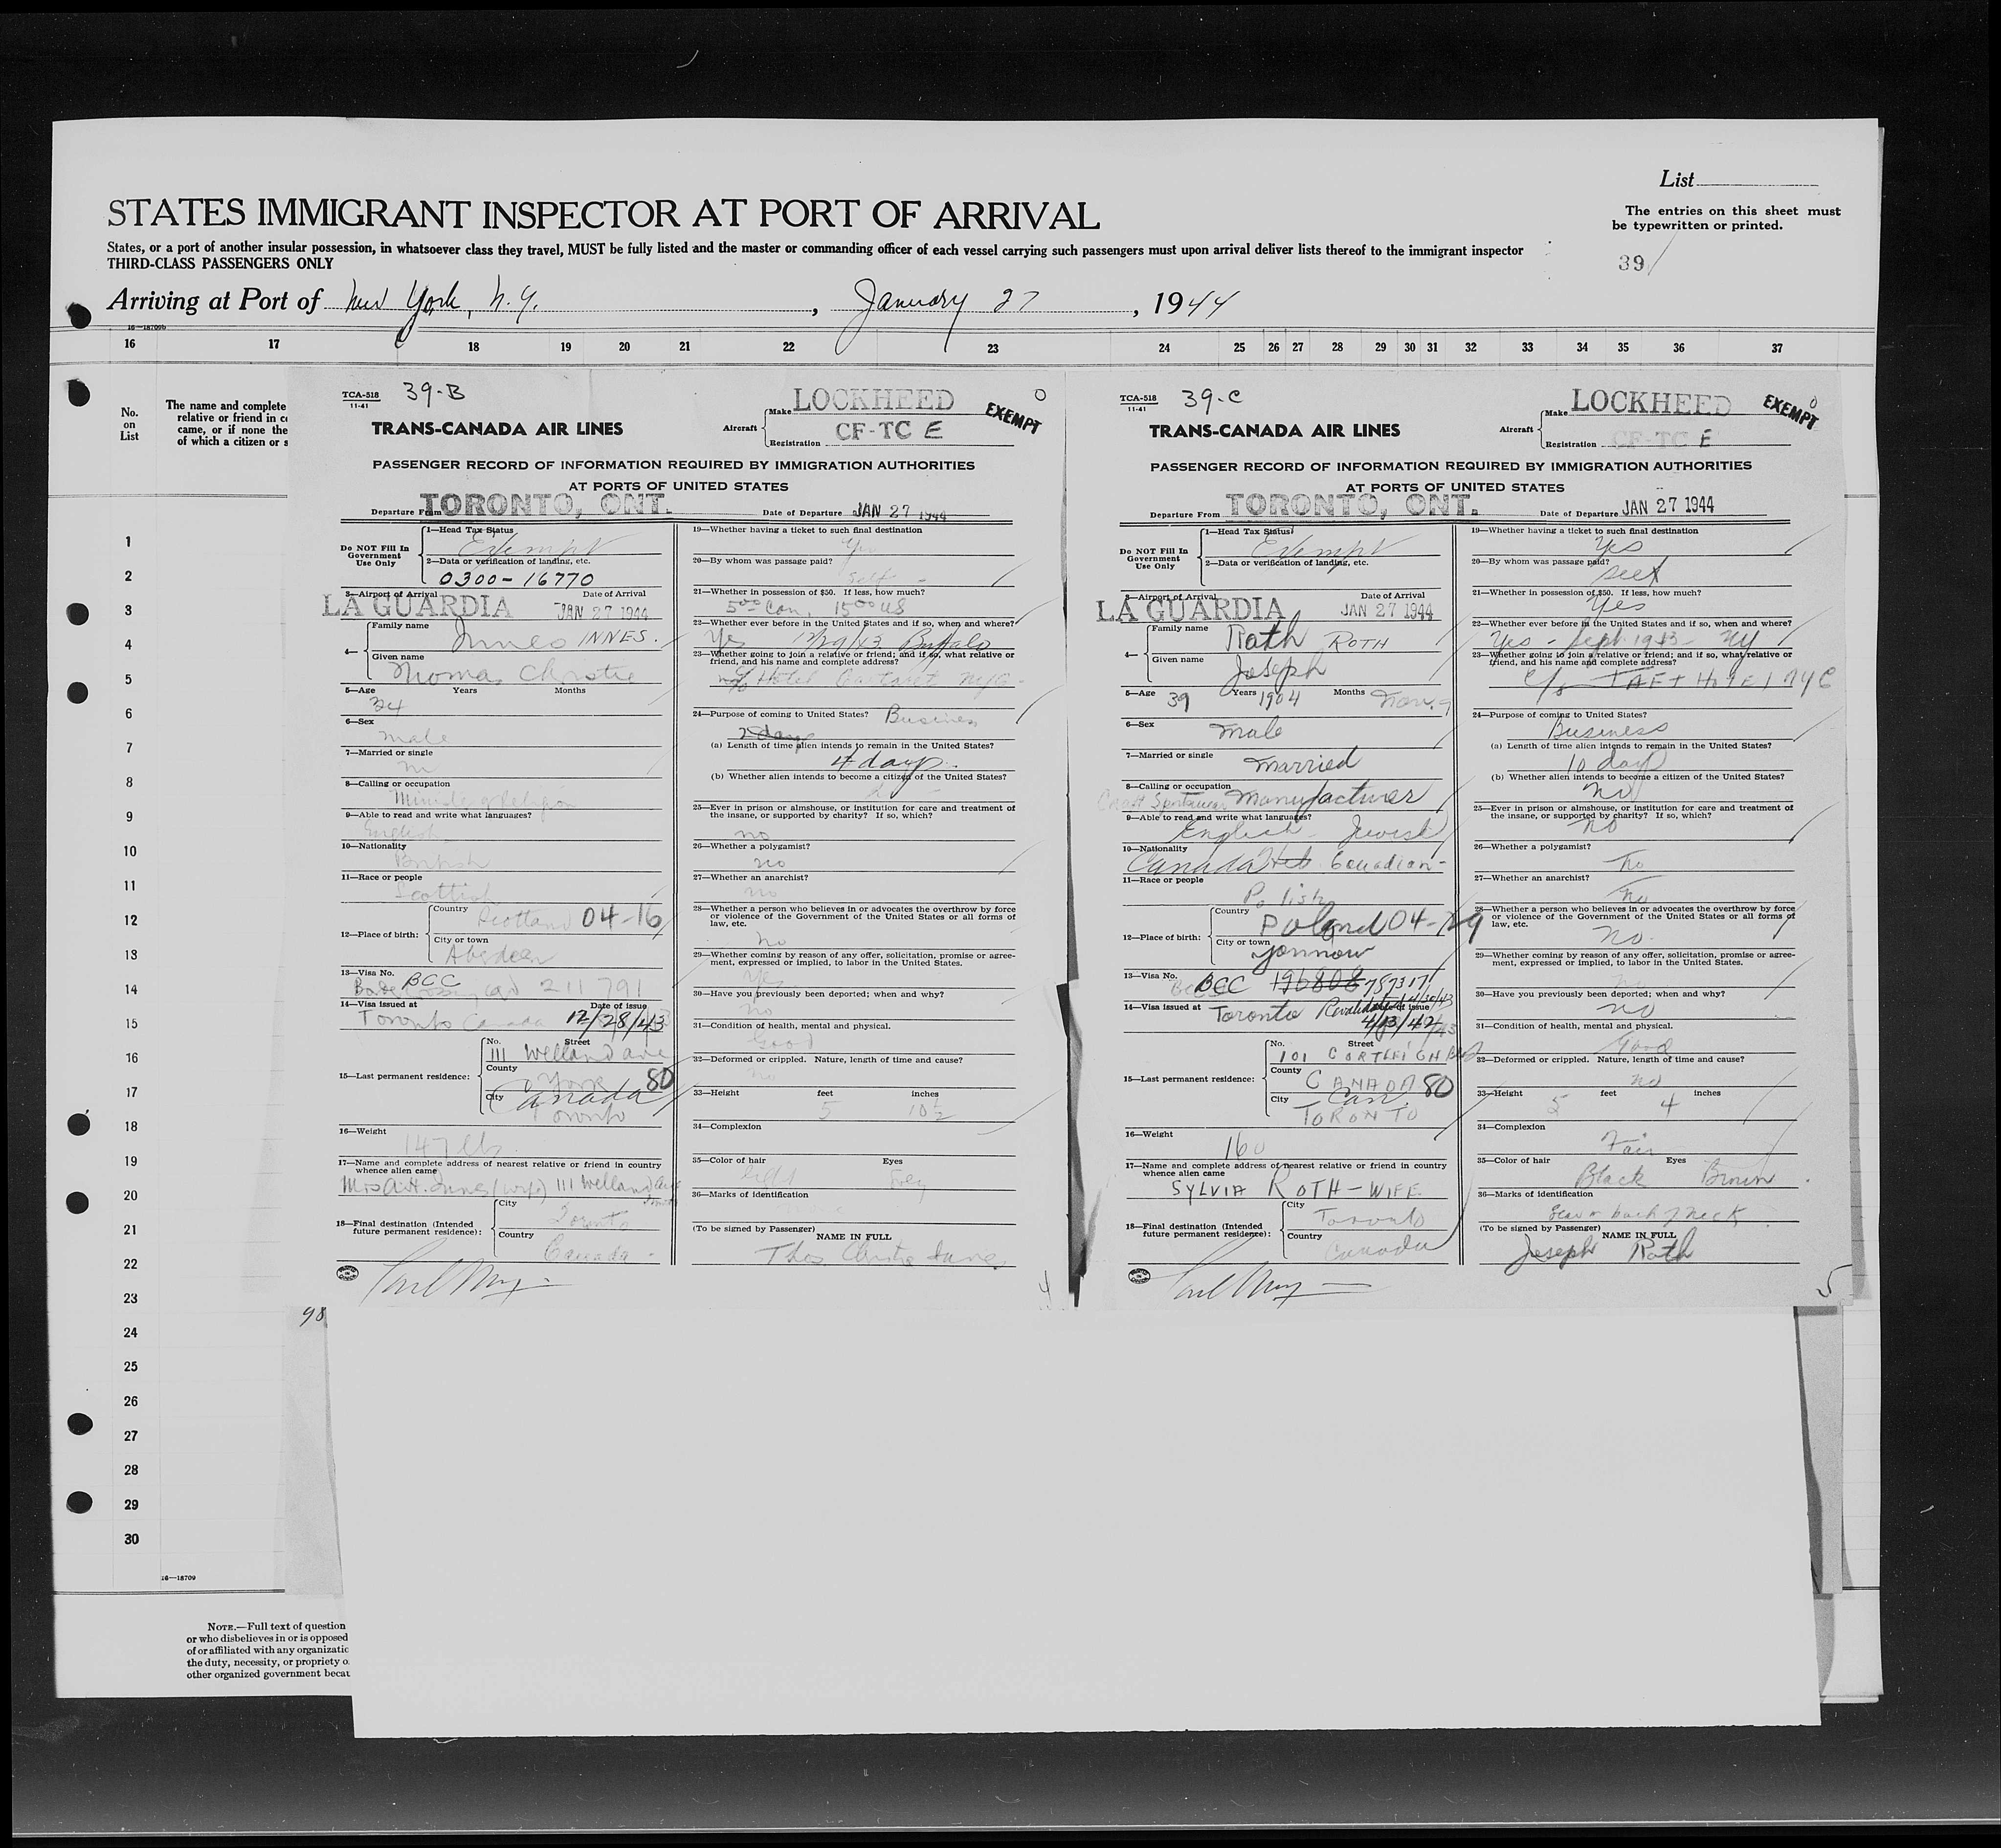 List
STATES IMMIGRANT INSPECTOR AT PORT OF ARRIVAL
The entries on this sheet must
be typewritten or printed.
States, or a port of another insular possession, in whatsoever class they travel, MUST be fully listed and the master or commanding officer of each vessel carrying such passengers must upon arrival deliver lists thereof to the immigrant inspector
THIRD-CLASS PASSENGERS ONLY
39
Arriving at Port of New York, N.Y. , January 27 , 1944
16—18709b
16 17 18 19 20 21 22 23 24 25 26 27 28 29 30 31 32 33 34 35 36 37
No.
on
List
The name and complete
relative or friend in c
came, or if none the
of which a citizen or s
1
2
3
4
5
6
7
8
9
10
11
12
13
14
15
16
17
18
19
20
21
22
23
24
25
26
27
28
29
30
16—18709
NOTE.—Full text of question
or who disbelieves in or is opposed
of or affiliated with any organizatic
the duty, necessity, or propriety o
other organized government becau
98
TCA-518
11-41
39-B
Aircraft
Make LOCKHEED
Registration CF-TC E
EXEMPT
TRANS-CANADA AIR LINES
PASSENGER RECORD OF INFORMATION REQUIRED BY IMMIGRATION AUTHORITIES
AT PORTS OF UNITED STATES
Departure From TORONTO, ONT. Date of Departure JAN 27 1944
Do NOT Fill In
Government
Use Only
1—Head Tax Status
Exempt
2—Data or verification of landing, etc.
0300-16770
3—Airport of Arrival Date of Arrival
LA GUARDIA JAN 27 1944
4— Family name
Innes INNES.
Given name
Thomas Christie
5—Age Years Months
34
6—Sex
male
7—Married or single
m
8—Calling or occupation
Minister of Religion
9—Able to read and write what languages?
English
10—Nationality
British
11—Race or people
Scottish
12—Place of birth:
Country
Scotland 04-16
City or town
Aberdeen
13—Visa No. BCC
211791
14—Visa issued at Date of issue
Toronto Canada 12/28/43
15—Last permanent residence:
No. Street
111 Welland ave
County
York 80
City Canada
Toronto
16—Weight
147 lbs
17—Name and complete address of nearest relative or friend in country
whence alien came
Mrs A.H. Innes (wife) 111 Welland ave
18—Final destination (Intended
future permanent residence):
City
Toronto
Country
Canada
19—Whether having a ticket to such final destination
Yes
20—By whom was passage paid?
Self
21—Whether in possession of $50. If less, how much?
5.00 Can. 15.00 US
22—Whether ever before in the United States and if so, when and where?
Yes 12/29/43 Buffalo
23—Whether going to join a relative or friend; and if so, what relative or
friend, and his name and complete address?
Hotel NYC
24—Purpose of coming to United States? Business
2 days
(a) Length of time alien intends to remain in the United States?
4 days.
(b) Whether alien intends to become a citizen of the United States?
25—Ever in prison or almshouse, or institution for care and treatment of
the insane, or supported by charity? If so, which?
no
26—Whether a polygamist?
no
27—Whether an anarchist?
no
28—Whether a person who believes in or advocates the overthrow by force
or violence of the Government of the United States or all forms of
law, etc.
no
29—Whether coming by reason of any offer, solicitation, promise or agree-
ment, expressed or implied, to labor in the United States.
Yes
30—Have you previously been deported; when and why?
no
31—Condition of health, mental and physical.
Good
32—Deformed or crippled. Nature, length of time and cause?
no
33—Height feet inches
5 10 1/2
34—Complexion
35—Color of hair Eyes
light Grey
36—Marks of identification
(To be signed by Passenger)
NAME IN FULL
Thos Christie Innes
4
TCA-518
11-41
39-C
Aircraft
Make LOCKHEED
Registration CF-TC E
EXEMPT
TRANS-CANADA AIR LINES
PASSENGER RECORD OF INFORMATION REQUIRED BY IMMIGRATION AUTHORITIES
AT PORTS OF UNITED STATES
Departure From TORONTO, ONT. Date of Departure JAN 27 1944
Do NOT Fill In
Government
Use Only
1—Head Tax Status
Exempt
2—Data or verification of landing, etc.
3—Airport of Arrival Date of Arrival
LA GUARDIA JAN 27 1944
4— Family name
Roth ROTH
Given name
Joseph
5—Age Years Months
39 1904 Nov. 7
6—Sex
male
7—Married or single
Married
8—Calling or occupation
Manufacturer
9—Able to read and write what languages?
English - Jewish
10—Nationality
Canada Heb Canadian-
11—Race or people
Polish
12—Place of birth:
Country
Poland 04-
City or town
13—Visa No.
BCC 196808 787317
14—Visa issued at Date of issue
Toronto Revalidated 4/30/43
4/13/42
15—Last permanent residence:
No. Street
101 CORTLEIGH Blvd
County
CANADA 80
City Can.
TORONTO
16—Weight
160
17—Name and complete address of nearest relative or friend in country
whence alien came
SYLVIA ROTH-WIFE
18—Final destination (Intended
future permanent residence):
City
Toronto
Country
Canada
19—Whether having a ticket to such final destination
Yes
20—By whom was passage paid?
self
21—Whether in possession of $50. If less, how much?
Yes
22—Whether ever before in the United States and if so, when and where?
Yes - Sept. 1943 - NY
23—Whether going to join a relative or friend; and if so, what relative or
friend, and his name and complete address?
c/o TAFT HOTEL NYC
24—Purpose of coming to United States?
Business
(a) Length of time alien intends to remain in the United States?
10 days
(b) Whether alien intends to become a citizen of the United States?
No
25—Ever in prison or almshouse, or institution for care and treatment of
the insane, or supported by charity? If so, which?
no
26—Whether a polygamist?
No
27—Whether an anarchist?
No
28—Whether a person who believes in or advocates the overthrow by force
or violence of the Government of the United States or all forms of
law, etc.
No.
29—Whether coming by reason of any offer, solicitation, promise or agree-
ment, expressed or implied, to labor in the United States.
No
30—Have you previously been deported; when and why?
No
31—Condition of health, mental and physical.
Good
32—Deformed or crippled. Nature, length of time and cause?
no
33—Height feet inches
5 4
34—Complexion
Fair
35—Color of hair Eyes
Black Brown
36—Marks of identification
Scar on back of neck
(To be signed by Passenger)
NAME IN FULL
Joseph Roth
5